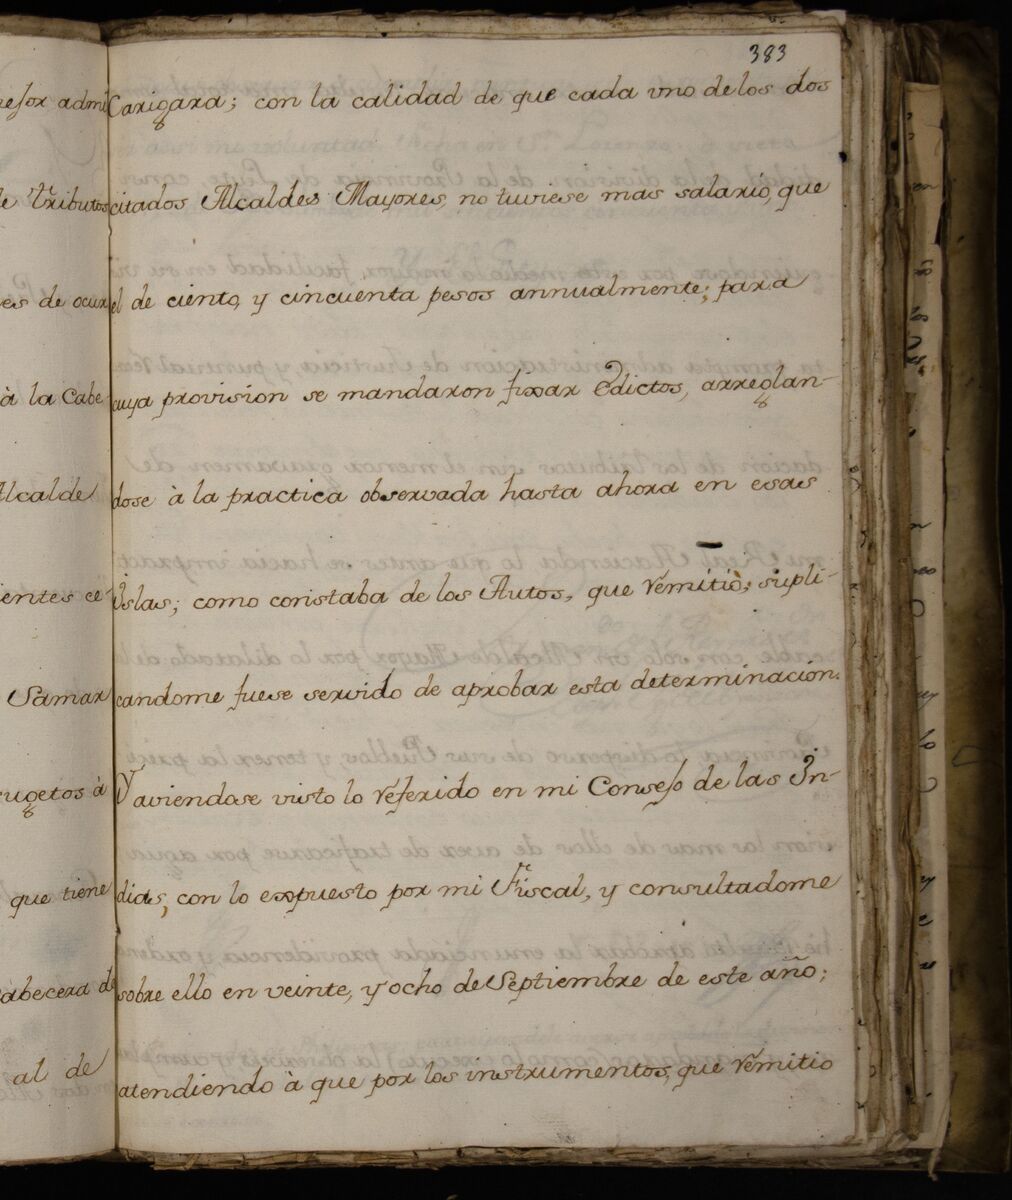 383
Carigara; con la calidad de que cada vno de los dos
citados Alcaldes Mayores, no tuviese mas salario, que
el de ciento, y cincuenta pesos annualmente; para
cuya provision se mandaron fixar Edictos, arreglan-
dose à la practica observada hasta ahora en esas
Yslas; como constaba de los Autos, que remitiò; supli-
candome fuese servido de aprobar esta determinacion.
Y aviendose visto lo referido en mi Consejo de las Yn-
dias, con lo expuesto por mi Fiscal, y consultadome
sobre ello en veinte, y ocho de Septiembre de este año;
atendiendo à que por los instrumentos, que remitio
admi
de Tributos
es de ocur
à la Cabe-
Alcalde
entes ce-
Samar
sugetos à
que tiene
Cabecera de
al de